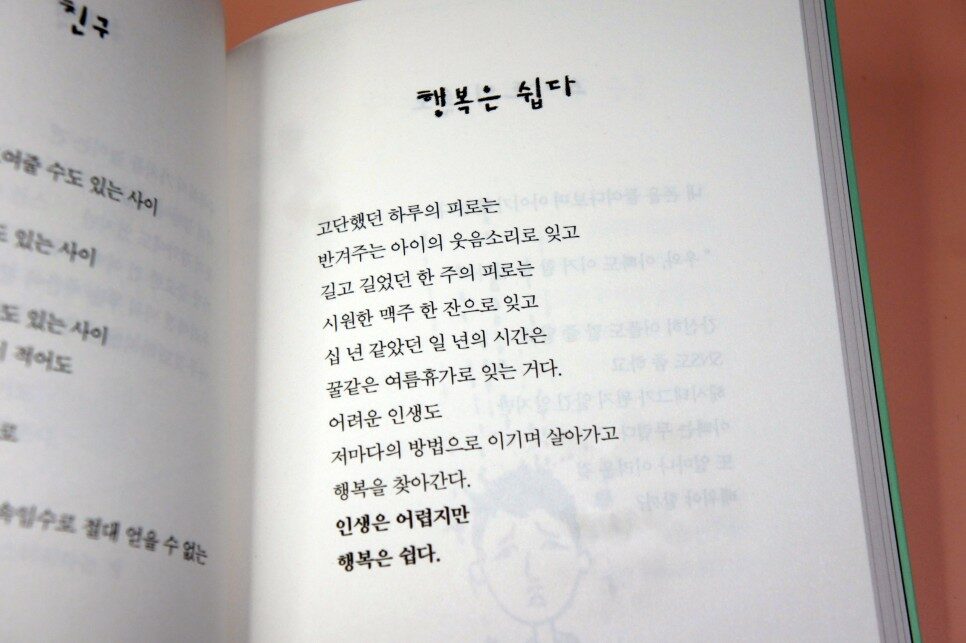 친구
여줄 수도 있는 사이
있는 사이
도 있는 사이
적어도
로
속임수로 절대 얻을 수 없는
행복은 쉽다
고단했던 하루의 피로는
반겨주는 아이의 웃음소리로 잊고
길고 길었던 한 주의 피로는
시원한 맥주 한 잔으로 잊고
십 년 같았던 일 년의 시간은
꿀같은 여름휴가로 잊는 거다.
어려운 인생도
저마다의 방법으로 이기며 살아가고
행복을 찾아간다.
인생은 어렵지만
행복은 쉽다.